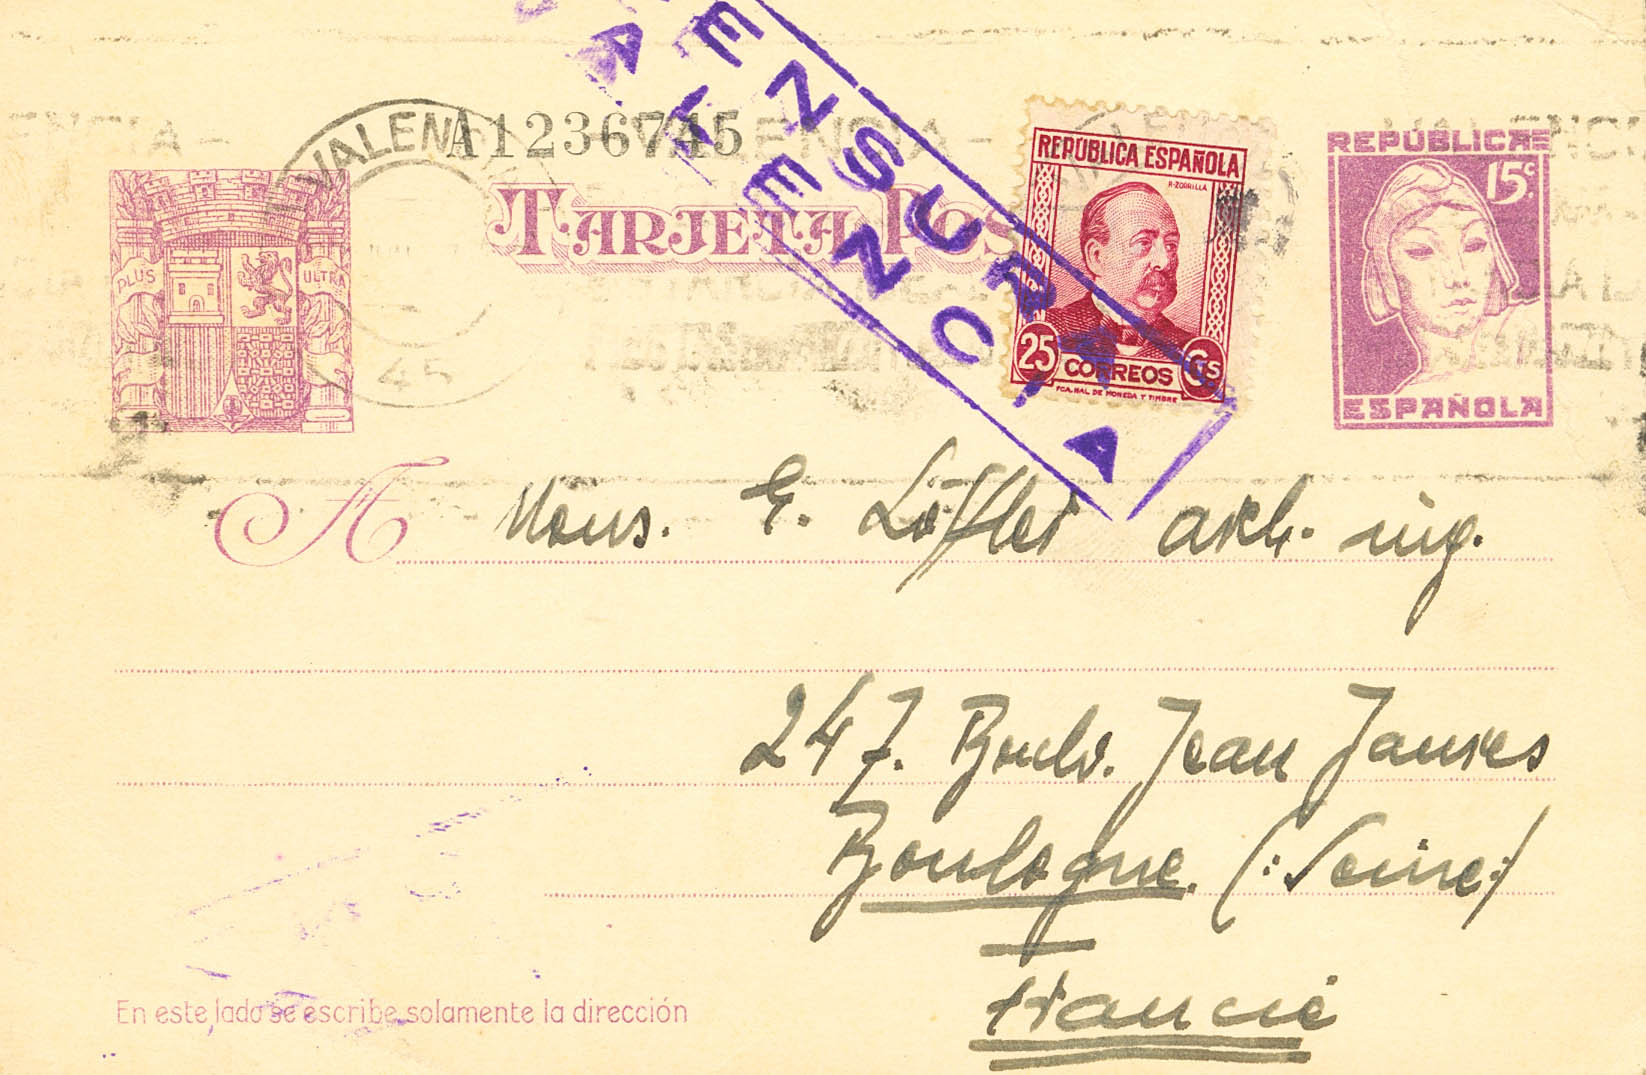 CENSURA
VALENCIA
A1236745
VALENCIA
TARJETA POS
PLUS ULTRA
REPÚBLICA ESPAÑOLA
R·ZORRILLA
25 CORREOS CTS
FCA.NAL DE MONEDA Y TIMBRE
REPÚBLICA
15c.
ESPAÑOLA
45
A Mons. G. Löffler arch. ing.
247. Boulv. Jean Jaures
Boulogne. (:Seine:)
France
En este lado se escribe solamente la dirección